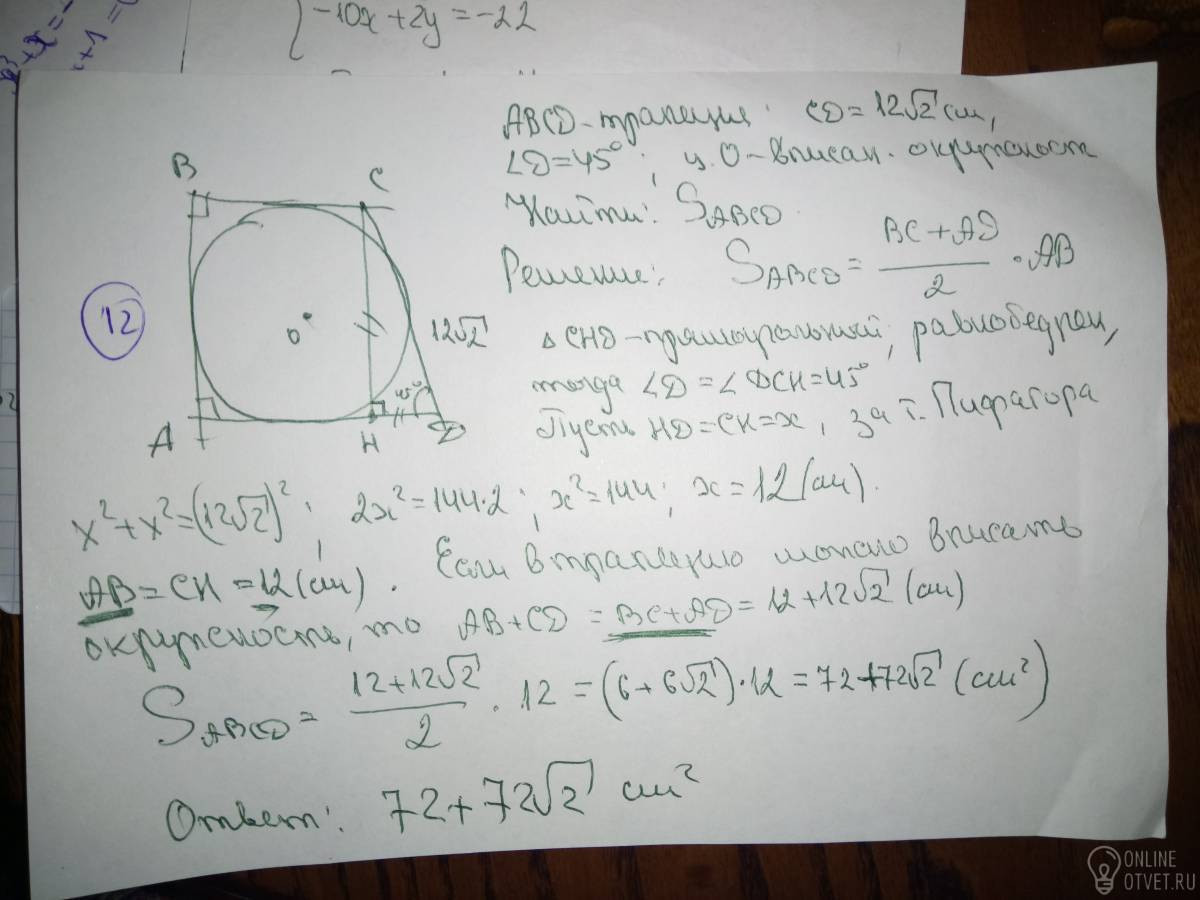 -10x+2y=-22
ABCD-трапеция: CD=12√2 см,
∠D=45°; ц. O-вписан. окружност
Найти: S_ABCD
Решение: S_ABCD = (BC+AD)/2 · AB
△CHD-прямоугольный, равнобедрен,
тогда ∠D=∠DCH=45°
Пусть HD=CH=x, за т. Пифагора
B
C
12
O
12√2
45°
A
H
D
x²+x²=(12√2)²; 2x²=144·2; x²=144; x=12(см).
AB=CH=12(см). Если в трапецию можно вписать
окружность, то AB+CD=BC+AD=12+12√2 (см)
S_ABCD = (12+12√2)/2 · 12 = (6+6√2)·12 = 72+72√2 (см²)
Ответ: 72+72√2 см²
ONLINE
OTVET.RU